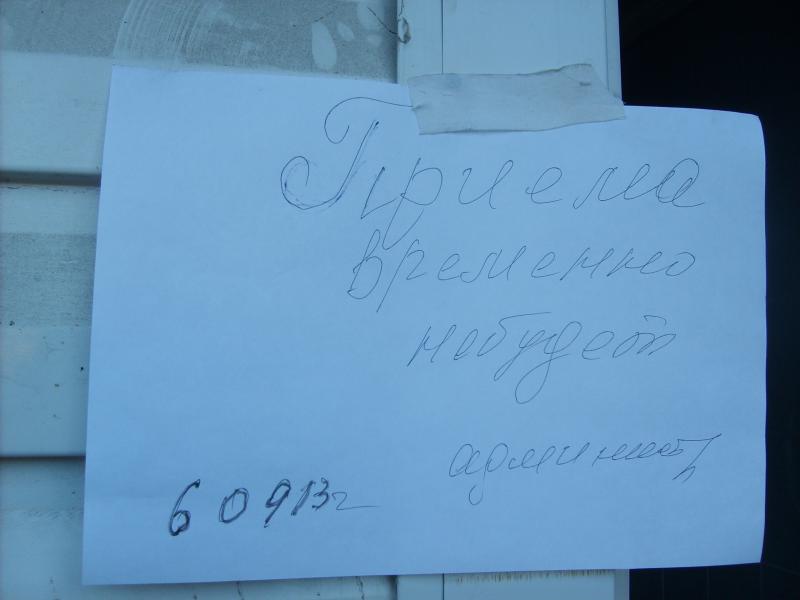 Приема
временно
небудет
админист
6 09 13г